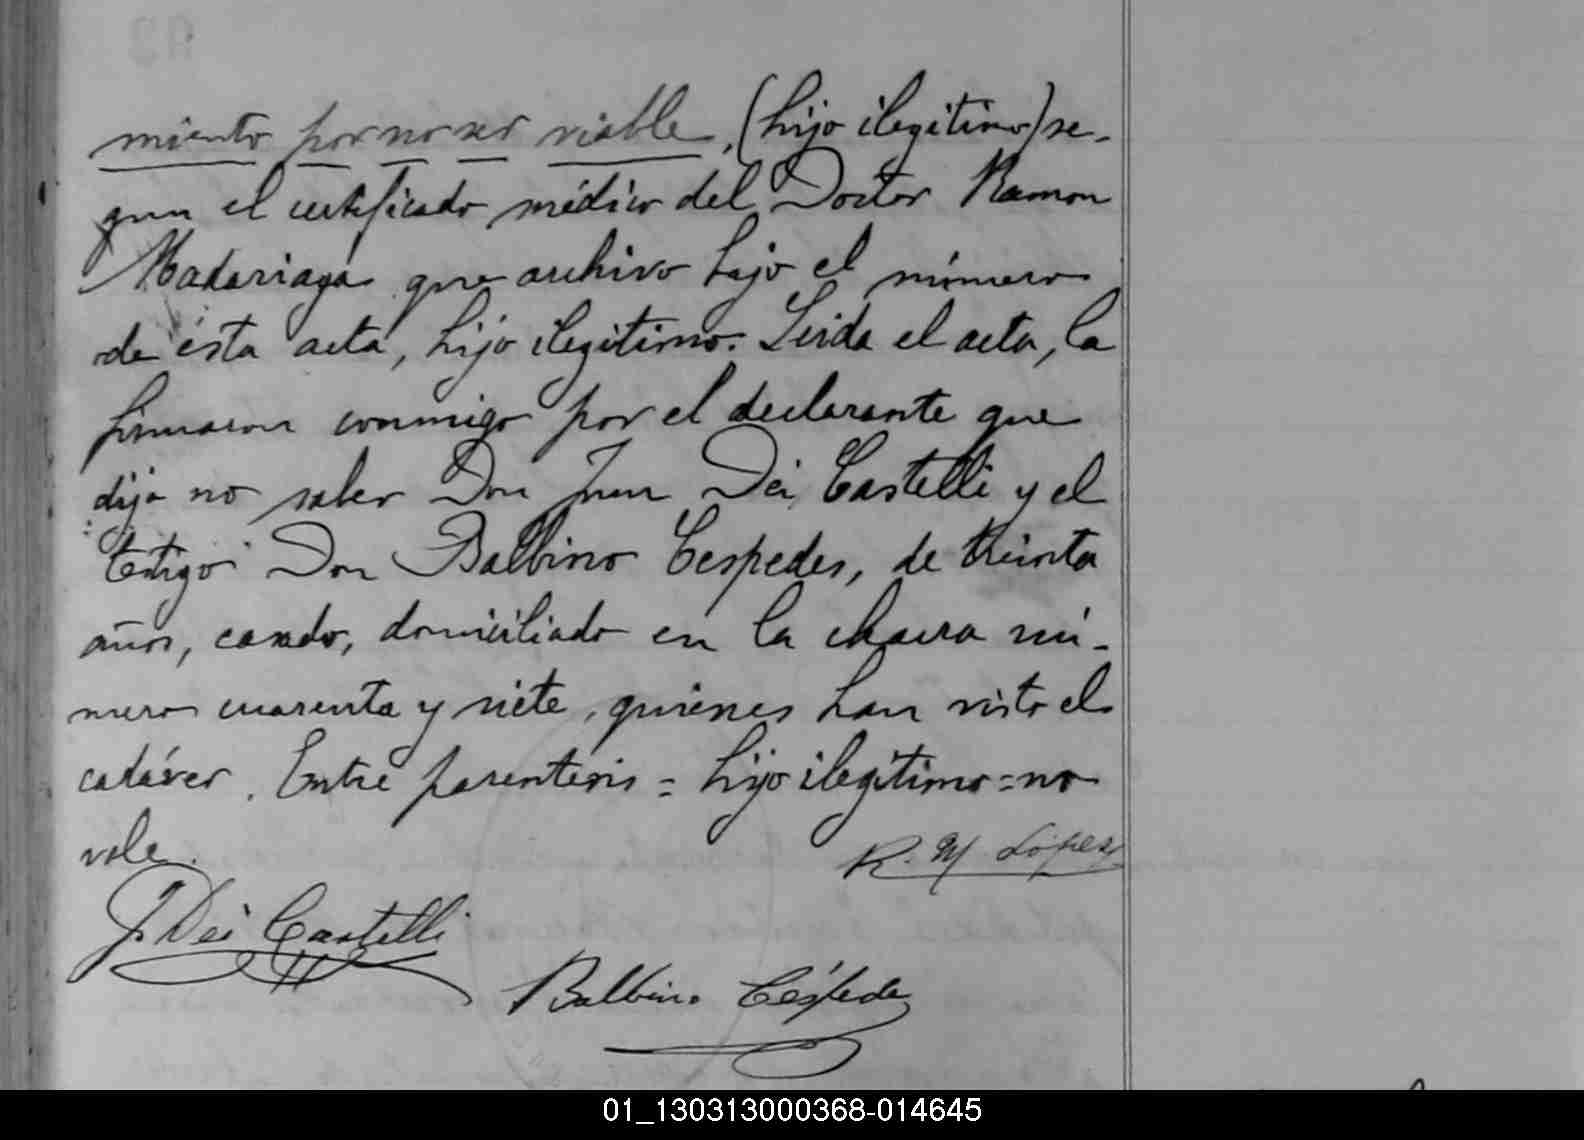 miento por no ser viable, (hijo ilegitimo) se-
gun el certificado médico del Doctor Ramon
Madariaga que archivo bajo el número
de ésta acta, hijo ilegitimo. Leida el acta, la
firmaron conmigo por el declarante que
dijo no saber Don Juan Dei Castelli y el
testigo Don Balbino Cespedes, de treinta
años, casado, domiciliado en la chacra nú-
mero cuarenta y siete, quienes han visto el
cadáver. Entre parentesis = hijo ilegitimo = no
vale.
R. M López
J. Dei Castelli
Balbino Céspede
01_130313000368-014645